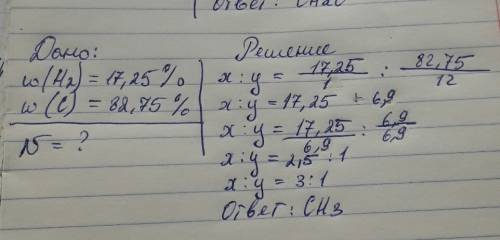 Ответ: CH2O
Дано:
w(H2) = 17,25%
w(C) = 82,75%
N = ?
Решение
x : y = 17,25/1 : 82,75/12
x : y = 17,25 : 6,9
x : y = 17,25/6,9 : 6,9/6,9
x : y = 2,5 : 1
x : y = 3 : 1
Ответ: CH3